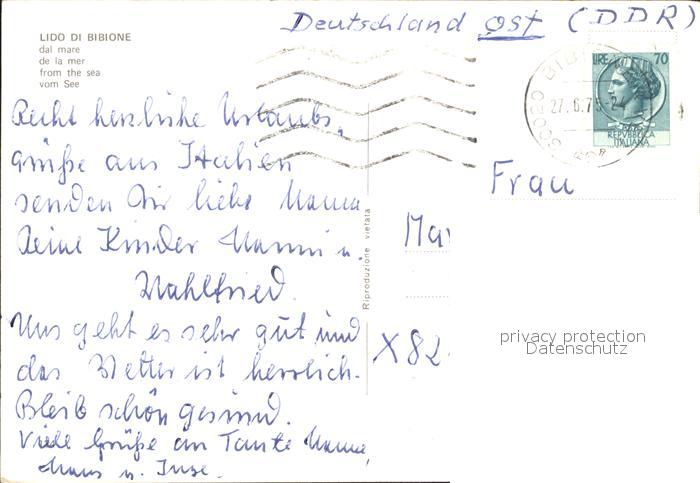 Deutschland Ost (DDR)
LIDO DI BIBIONE
dal mare
de la mer
from the sea
vom See
LIRE 70
REPVBBLICA
ITALIANA
27.6.7
Recht herzliche Urlaubs-
grüße aus Italien
senden Dir liebe Mama
Deine Kinder Hanni u.
Wahlfried.
Uns geht es sehr gut und
das Wetter ist herrlich.
Bleib schön gesund.
Viele Grüße an Tante
Hans u. Inge.
Riproduzione vietata
Frau
X82
privacy protection
Datenschutz